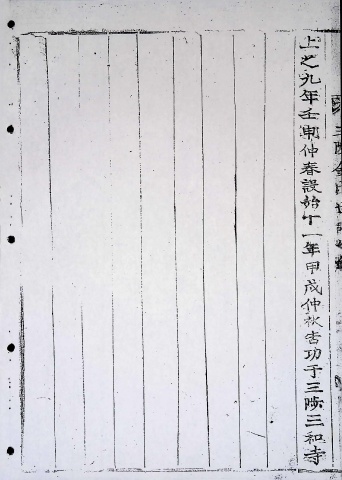 上之九年壬申仲春設始十一年甲戌仲秋告功于三陟三和寺
三陟金氏世譜